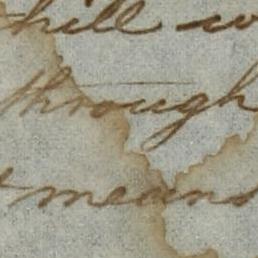 hill
through
means